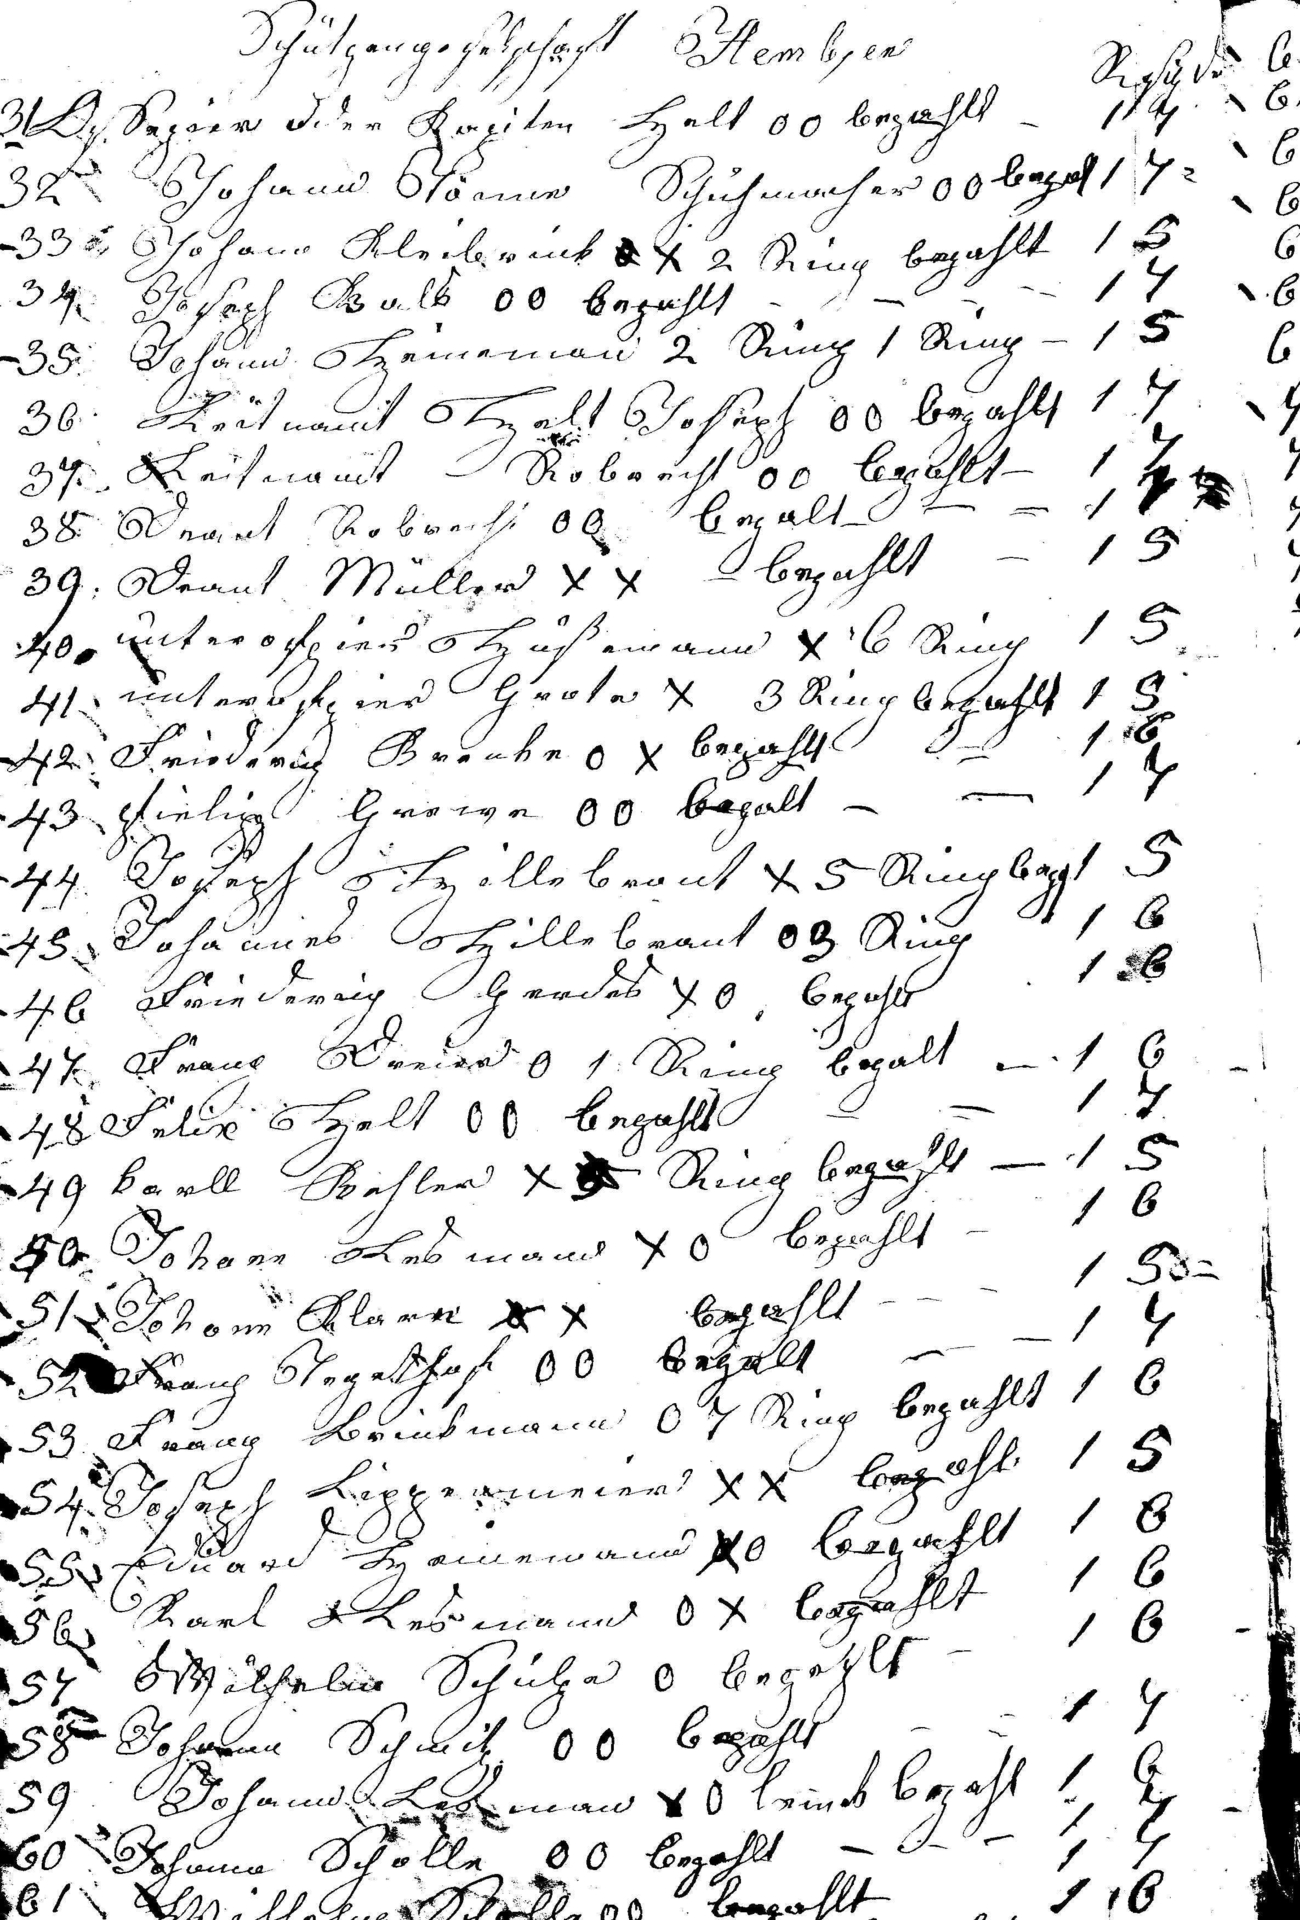 Schützengeselschaft Hembsen
31 Ofsezier oder Kapiten Helt 00 bezahlt – 1 7
32 Johann Tönne Schuhmacher 00 bezal 1 7
33 Johann Kleibrink X 2 Ring bezahlt 1 5
34 Joseph Balk 00 bezahlt - – - - 1 7
35 Johann Heineman 2 Ring 1 Ring – 1 5
36 Leitnamt Helt Joseph 00 bezahlt 1 7
37. Leitnamt – Robrecht 00 bezahlt – 1 7
38 Deant Robrecht 00 bezalt – – = 1 7
39. Deant Müller X X – bezahlt – 1 5
40. unterofzier Hüßemann X 6 Ring 1 5
41 unterofzier Grote X 3 Ring bezahlt 1 5
42 Friederig Brenke 0 X bezahlt – 1 6
43 fielip Grewe 00 bezalt – — 1 7
44 Joseph Hillebrant X 5 Ring 1 5
45 Johannes Hillebrant 0 3 Ring 1 6
46 Friederig Gerdes X 0 bezahlt 1 6
47 Franz Dreier 0 1 Ring bezalt – 1 6
48 Felix Helt 00 bezahlt – – 1 7
49 Karll Kahler X Ring bezahlt – 1 5
50 Johann Lesmann X 0 bezahlt – 1 6
51 Johann Klare X bezahlt - - - 1 5
52 Franz Tegethof 00 bezalt – – 1 7
53 Franz Brinkmann 0 7 Ring bezahlt 1 6
54 Joseph Lippermeier X X bezahl 1 5
55 Eduard Heinemann X 0 bezahlt 1 6
56 Karl Lesmann 0 X bezahlt 1 6
57 Wilhelm Schulze 0 bezahlt – 1 6
58 Johann Schmitz 00 bezahlt – – 1 7
59 Johann Lesman X 0 bezahl 1 6
60 Johann Scholle 00 bezahlt – – – 1 7
61 Wilhelm Scholle 00 bezahlt 1 6